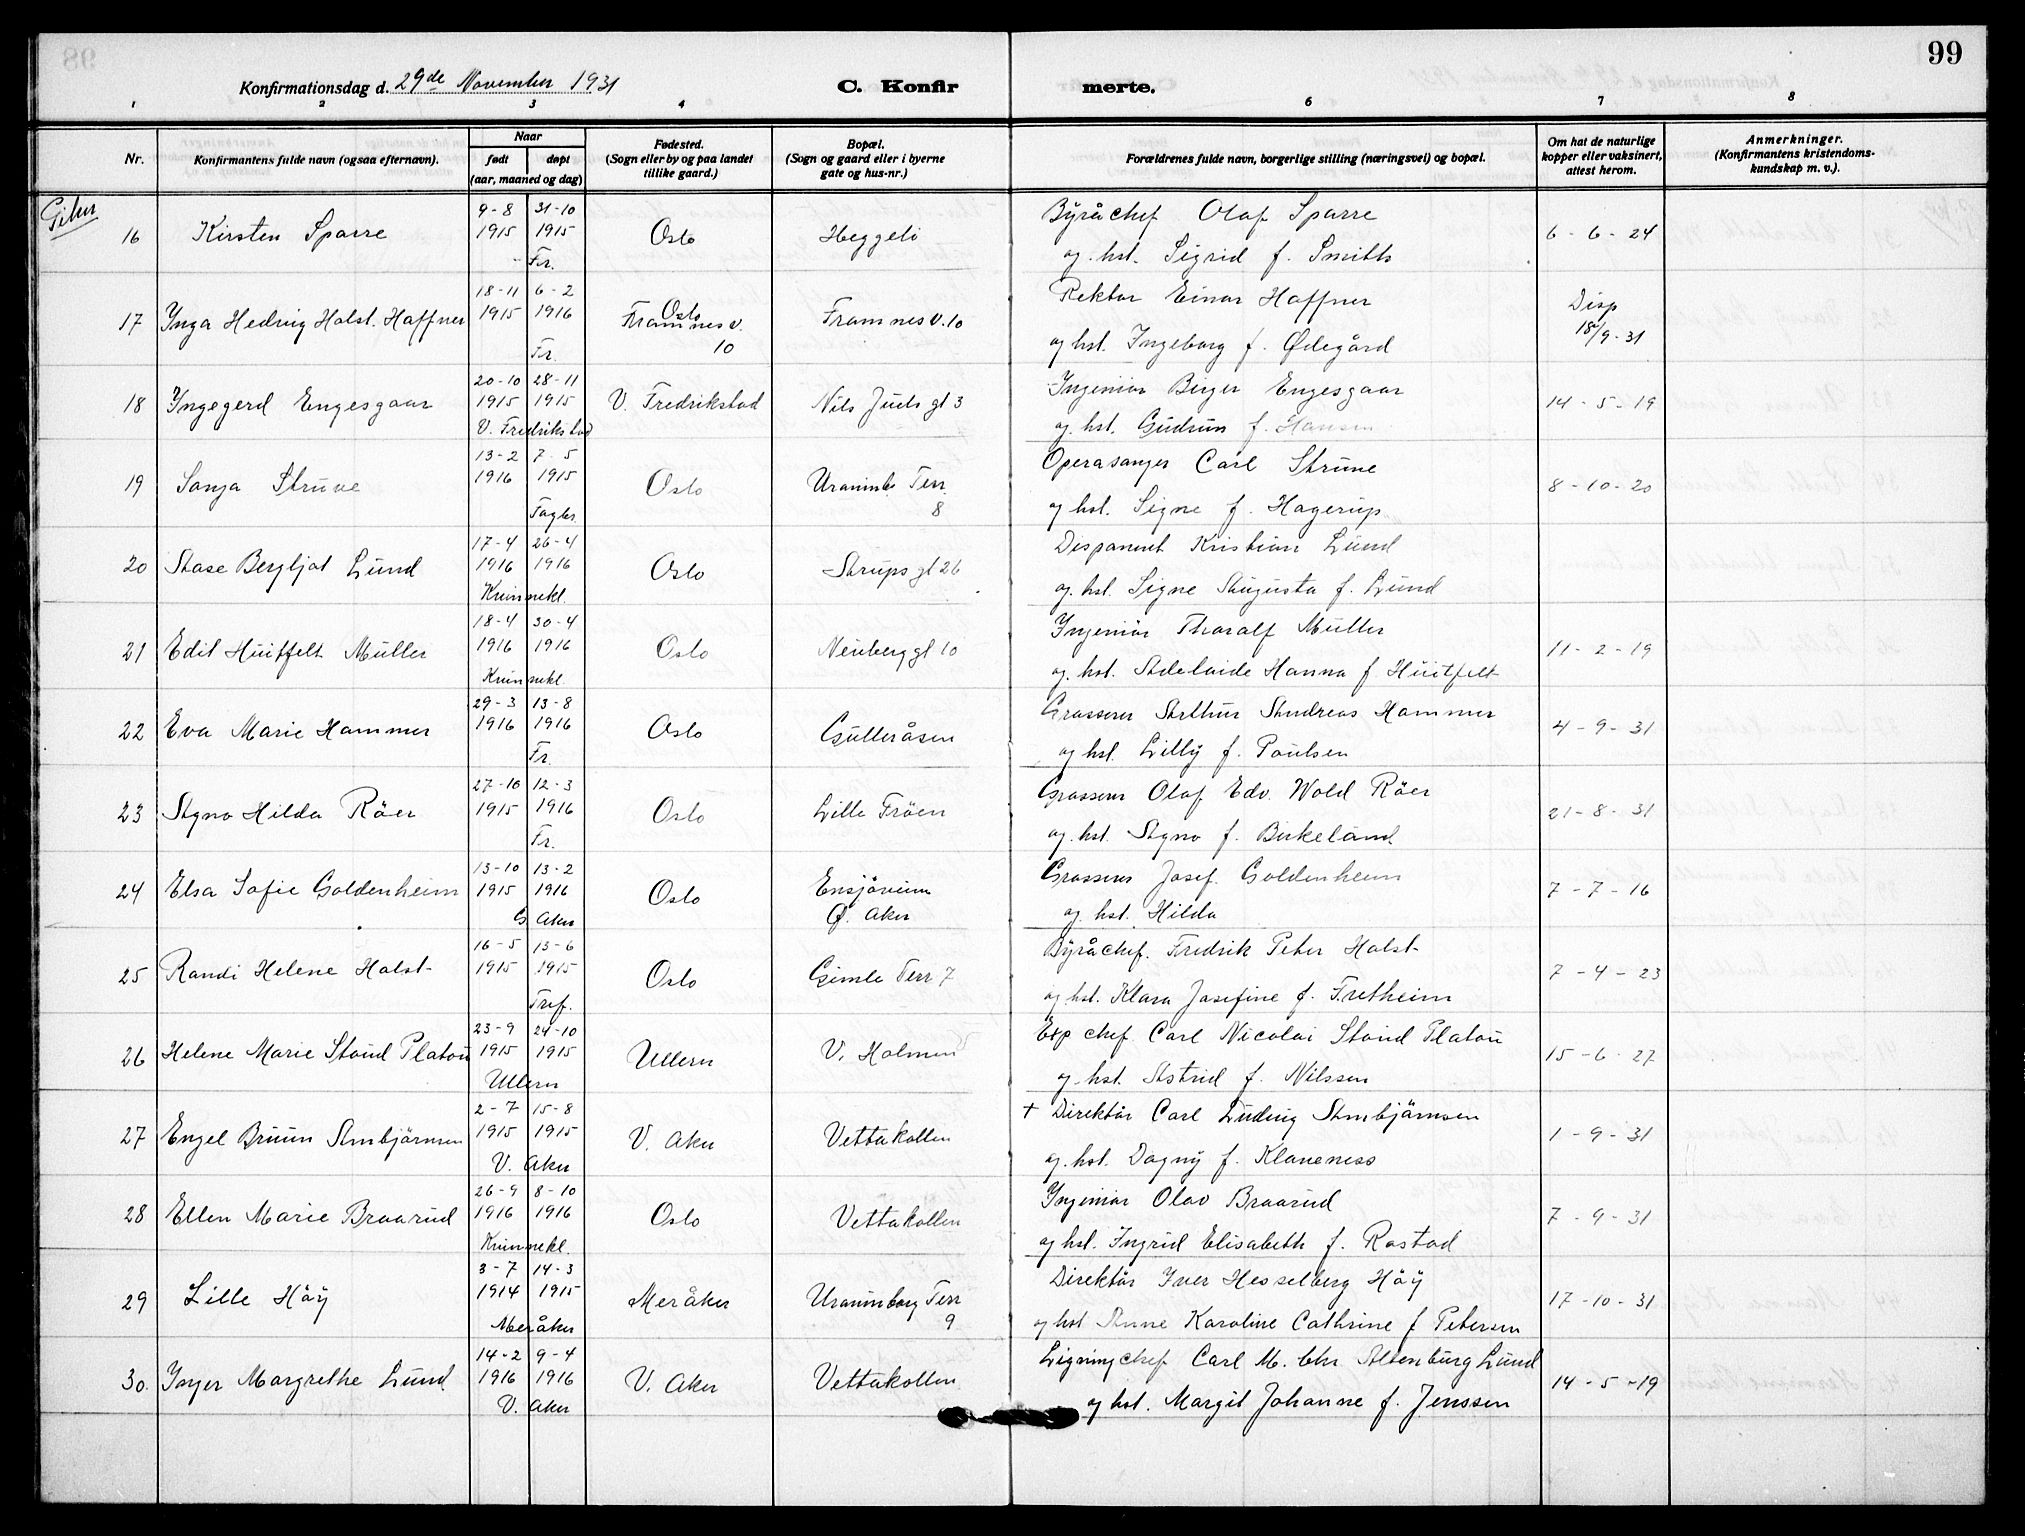 99
Konfirmationsdag d. 29de November 1931
C. Konfirmerte.
1 2 3 4 6 7 8
Nr.
Konfirmantens fulde navn (ogsaa efternavn).
Naar
født døpt
(aar, maaned og dag)
Fødested.
(Sogn eller by og paa landet
tillike gaard.)
Bopæl.
(Sogn og gaard eller i byerne
gate og hus-nr.)
Forældrenes fulde navn, borgerlige stilling (næringsvei) og bopæl.
Om hat de naturlige
kopper eller vaksinert,
attest herom.
Anmerkninger.
(Konfirmantens kristendoms-
kundskap m. v.).
16 Kirsten Sparre 9-8 1915 31-10 1915 Fr. Oslo Heggeli
Byråchef Olaf Sparre
og hst. Sigrid f. Smith
6-6-24
17 Inga Hedvig Holst. Haffner 18-11 1915 6-2 1916 Fr. Oslo Framnes v. 10 Framnes v. 10
Rektor Einar Haffner
og hst. Ingeborg f. Ødegård
Disp 18/9-31
18 Ingegerd Engesgaar 20-10 1915 28-11 1915 V. Fredrikstad V. Fredrikstad Nils Juels gt 3
Ingeniör Birger Engesgaar
og. hst. Gudrun f. Hansen
14-5-19
19 Sonja Struve 13-2 1916 7-5 1915 Fagb. Oslo Uranienb Terr. 8
Operasanger Carl Struve
og hst. Signe f. Hagerup
8-10-20
20 Aase Bergljot Lund 17-4 1916 26-4 1916 Kvinnekl. Oslo Arups gt 26
Disponent Kristian Lund
og. hst. Signe Augusta f. Lund
21 Edit Huitfelt Müller 18-4 1916 30-4 1916 Kvinnekl. Oslo Neuberggt 10
Ingeniör Thoralf Müller
og. hst. Adelaide Hanna f Huitfelt
11-2-19
22 Eva Marie Hammer 29-3 1916 13-8 1916 Fr. Oslo Gulleråsen
Grosserer Arthur Andreas Hammer
og hst. Lilly f. Poulsen
4-9-31
23 Agno Hilda Röer 27-10 1915 12-3 1916 Fr. Oslo Lille Fröen
Grosserer Olaf Edv. Wold Röer
og. hst. Agno f. Birkeland
21-8-31
24 Elsa Sofie Goldenheim 13-10 1915 13-2 1916 G Aker Oslo Ensjöveien Ø. Aker
Grosserer Josef Goldenheim
og. hst. Hilda
7-7-16
25 Randi Helene Holst 16-5 1915 13-6 1915 Tref. Oslo Gimle Terr 7
Byråchef. Fredrik Peter Holst
og hst. Klara Josefine f. Fretheim
7-4-23
26 Helene Marie Stoud Platou 23-9 1915 24-10 1915 Ullern Ullern V. Holmen
Exp chef. Carl Nicolai Stoud Platou
og hst. Astrid f. Nilssen
15-6-27
27 Engel Bruun Arnbjörnsen 2-7 1915 15-8 1915 V. Aker V. Aker Vettakollen
+ Direktör Carl Ludvig Arnbjörnsen
og. hst. Dagny f. Klaveness
1-9-31
28 Ellen Marie Braarud 26-9 1916 8-10 1916 Kvinnekl. Oslo Vettakollen
Ingeniör Olav Braarud
og hst. Ingrid Elisabeth f. Rostad
7-9-31
29 Lille Höÿ 3-7 1914 14-3 1915 Meråker Meråker Uranienborg Terr 9
Direktör Iver Hesselberg Höÿ
og hst Anne Karoline Cathrine f Petersen
17-10-31
30. Inger Margrethe Lund 14-2 1916 9-4 1916 V. Aker V. Aker Vettakollen
Ligningchef Carl M. Chr Altenburg Lund
og hst. Margit Johanne f. Jenssen
14-5-19